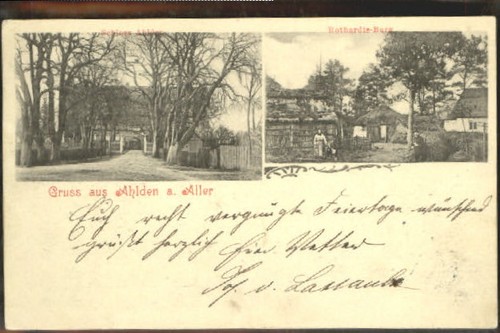 Schloss Ahlden
Rothardis-Burg
Gruss aus Ahlden a. Aller
Euch recht vergnügte Feiertage wünschend
grüßt herzlich Euer Vetter
Jos. v. Lassaulx